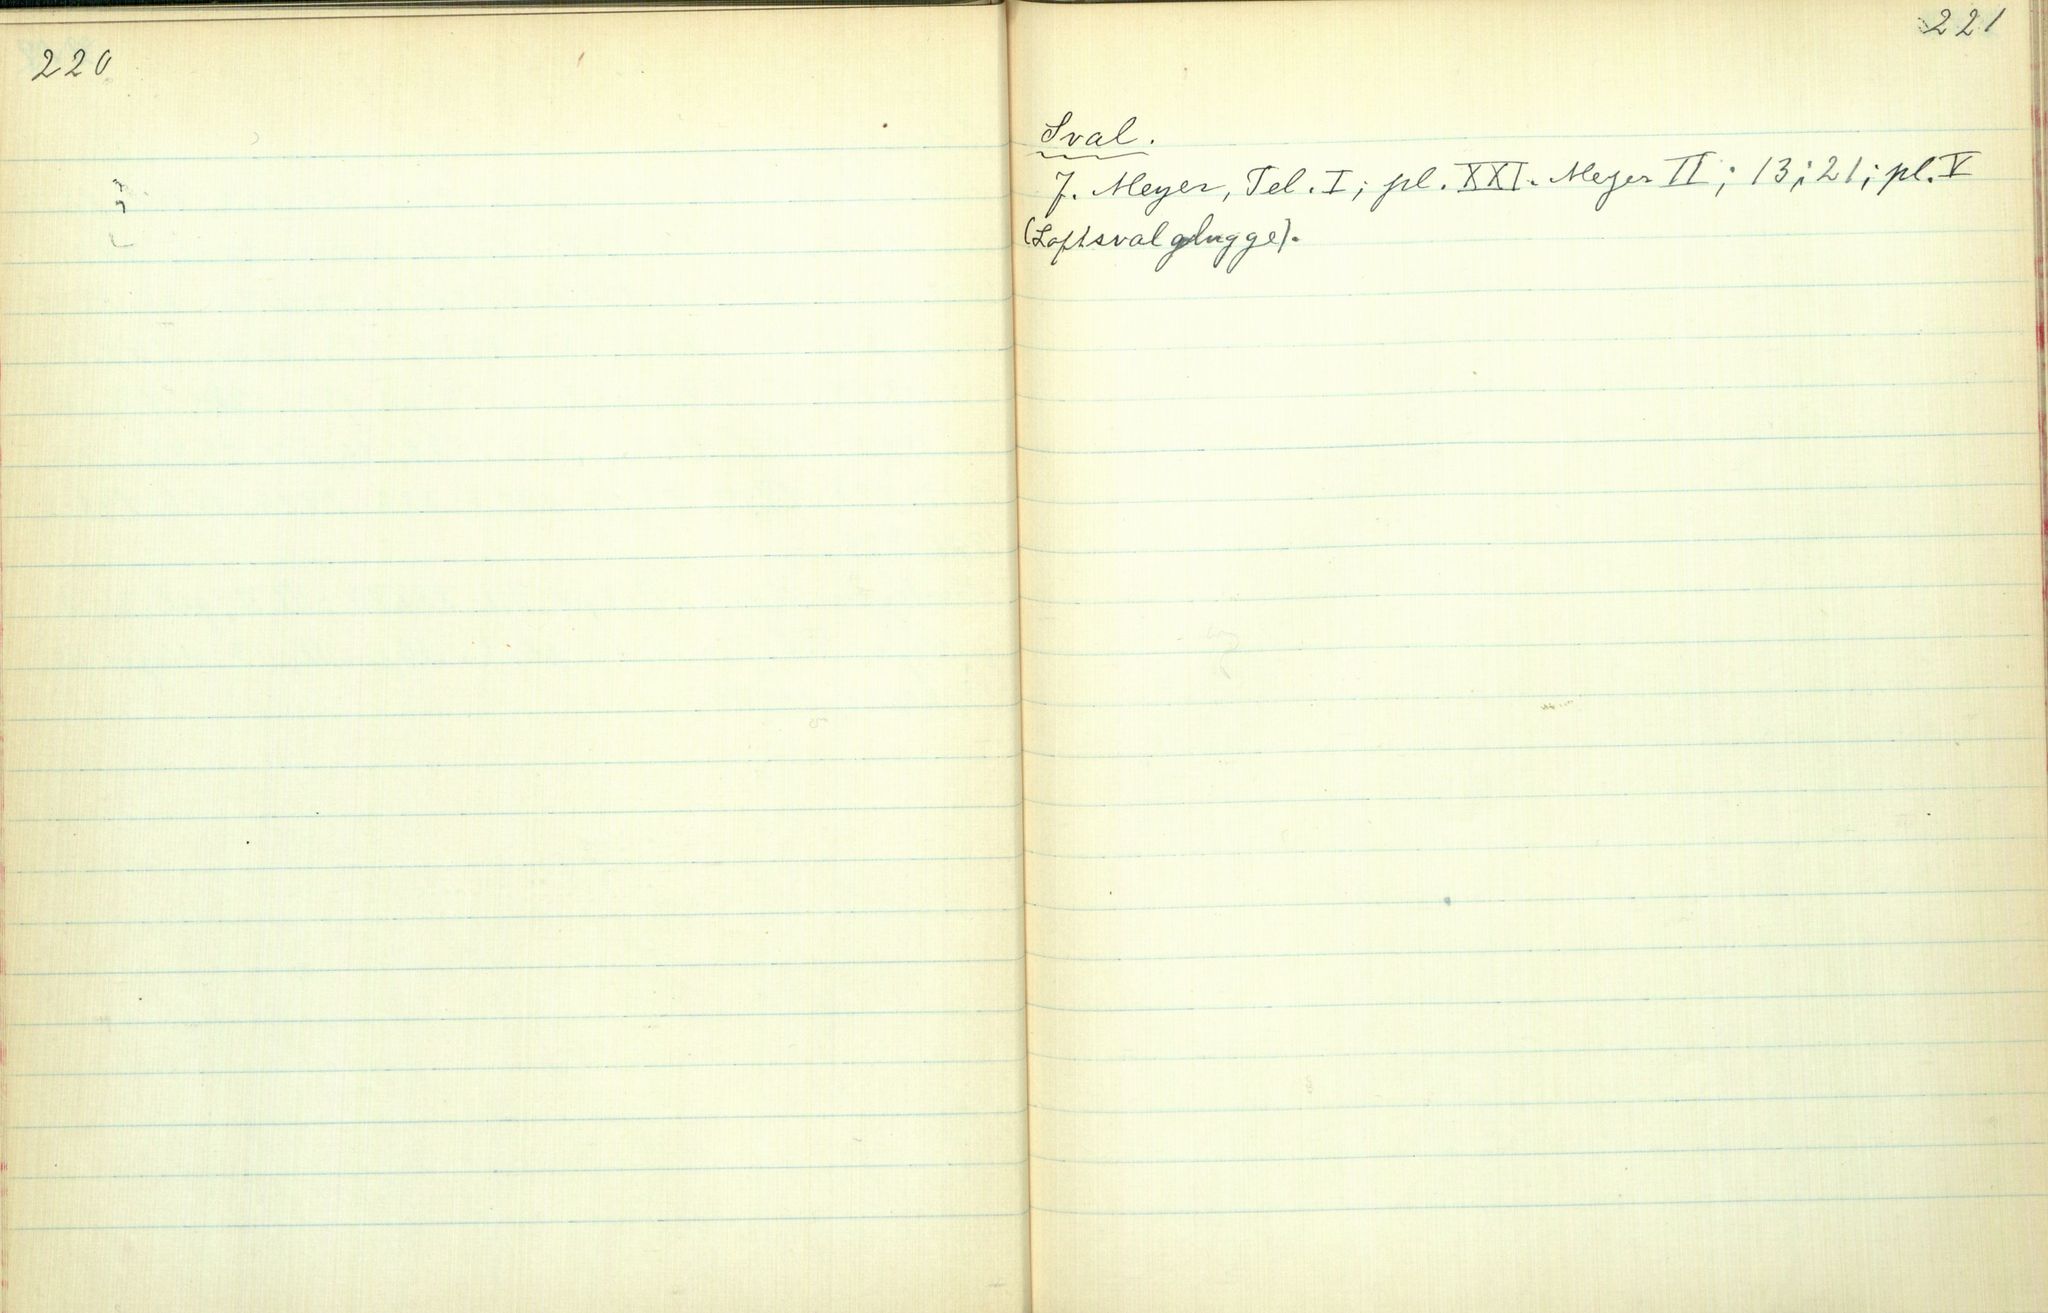 220
221
Sval.
J. Meyer, Tel. I; pl. XXI. Meyer II; 13; 21; pl. V
(Loftsvalglugge).